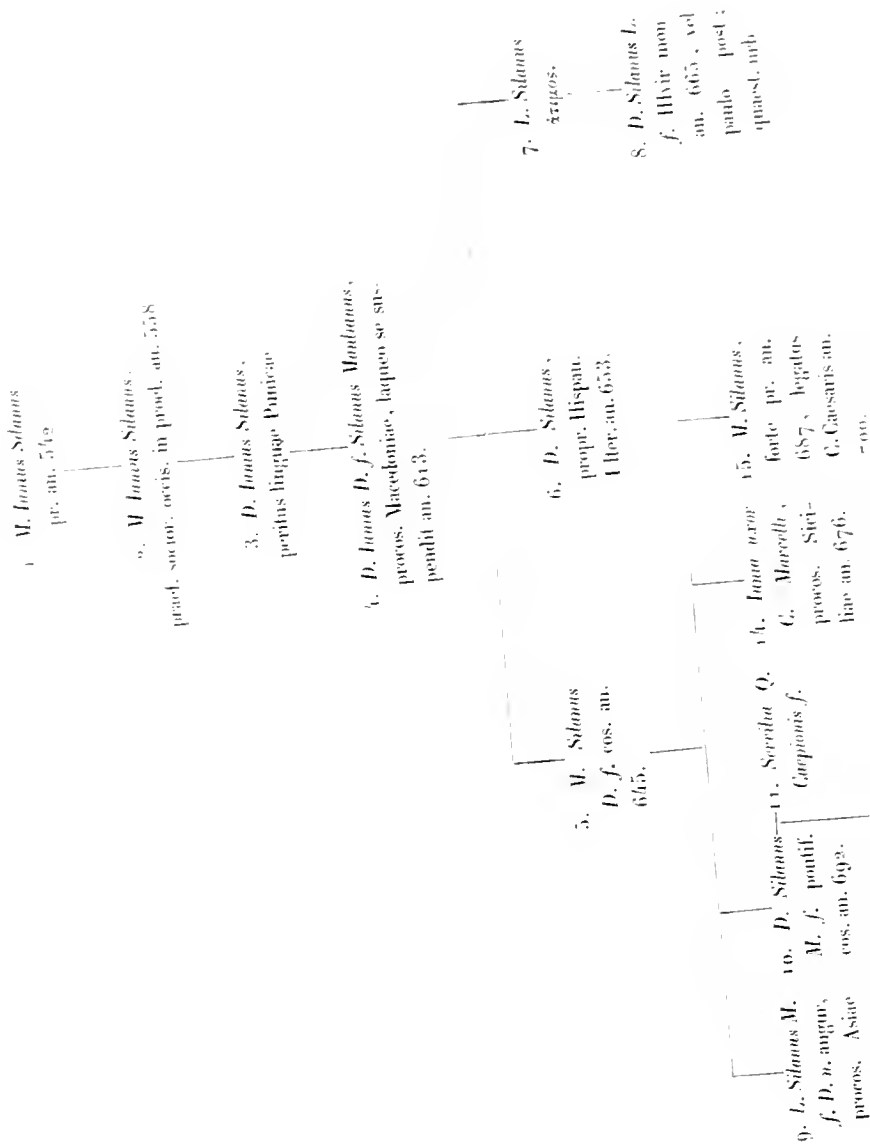 1 M. Iunius Silanus
pr. an. 542
2. M Iunius Silanus,
praef. socior. occis. in proel. an. 558
3. D. Iunius Silanus,
peritus linguae Punicae
4. D. Iunius D. f. Silanus Manlianus,
procos. Macedoniae, laqueo se sus-
pendit an. 613.
5. M. Silanus
D. f. cos. an.
645.
6. D. Silanus,
propr. Hispan.
Ulter. an. 653.
7. L. Silanus
ἄτιμος.
8. D. Silanus L.
f. IIIvir mon
an. 665, vel
paulo post;
quaest. urb
9. L. Silanus M.
f. D. n. augur,
procos. Asiae
10. D. Silanus
M. f. pontif.
cos. an. 692.
11. Servilia Q.
Caepionis f.
14. Iunia uxor
C. Marcelli,
procos. Sici-
liae an. 676.
15. M. Silanus,
forte pr. an.
687, legatus
C. Caesaris an.
700.